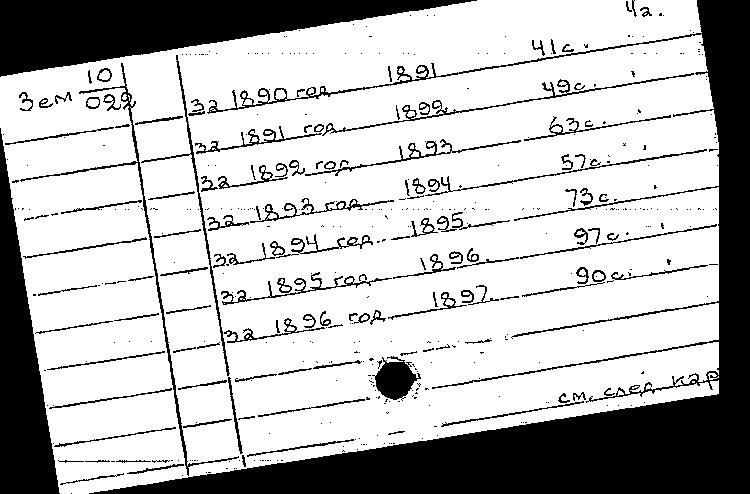 4а.
Зем 10/022
за 1890 год 1891 41с.
за 1891 год. 1892. 49с.
за 1892 год. 1893. 63с.
за 1893 год 1894. 57с.
за 1894 год. 1895. 73с.
за 1895 год. 1896. 97с.
за 1896 год. 1897. 90с.
см. след. кар